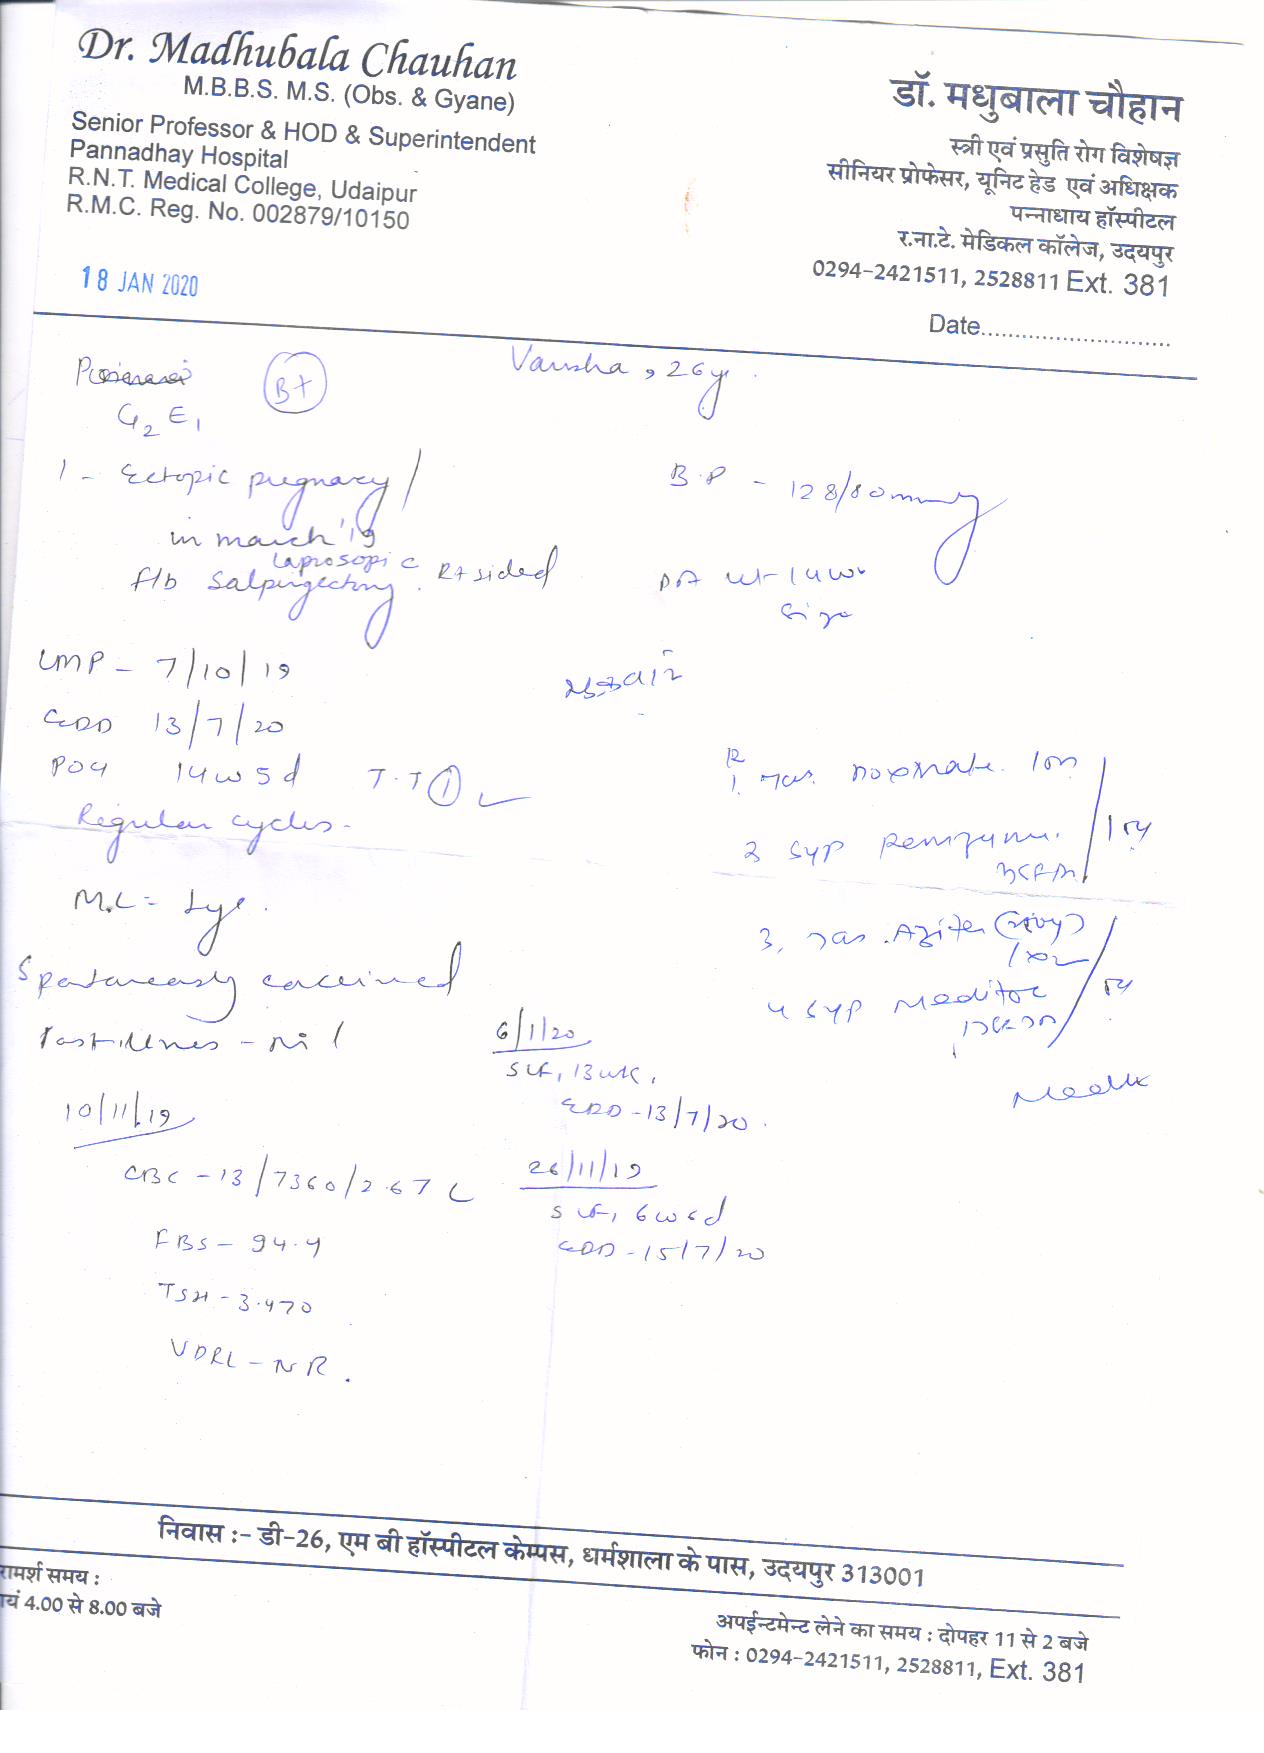 Dr. Madhubala Chauhan
M.B.B.S. M.S. (Obs. & Gyane)
Senior Professor & HOD & Superintendent
Pannadhay Hospital
R.N.T. Medical College, Udaipur
R.M.C. Reg. No. 002879/10150
18 JAN 2020
डॉ. मधुबाला चौहान
स्त्री एवं प्रसुति रोग विशेषज्ञ
सीनियर प्रोफेसर, यूनिट हेड एवं अधिक्षक
पन्नाधाय हॉस्पीटल
र.ना.टे. मेडिकल कॉलेज, उदयपुर
0294-2421511, 2528811 Ext. 381
Date
B+
26 y
G2 E1
1 - Ectopic pregnancy /
in march '19
f/b Salpingectomy. Rt sided
LMP - 7/10/19
EDD 13/7/20
POG 14w 5d T.T ①
Regular cycles-
M.L = 1yr.
Spontaneously conceived
Past illness - Nil
10/11/19
CBC - 13/7360/2.67 L
FBS - 94.4
TSH - 3.470
VDRL - NR.
B.P - 128/80 mmHg
P/A ut-14w
size
6/1/20
SLF, 13wk,
EDD - 13/7/20.
26/11/19
SLF, 6w6d
EDD - 15/7/20
1.
2 Syp
3.
4 Syp
निवास :- डी-26, एम बी हॉस्पीटल केम्पस, धर्मशाला के पास, उदयपुर 313001
रामर्श समय :
यं 4.00 से 8.00 बजे
अपईन्टमेन्ट लेने का समय : दोपहर 11 से 2 बजे
फोन : 0294-2421511, 2528811, Ext. 381